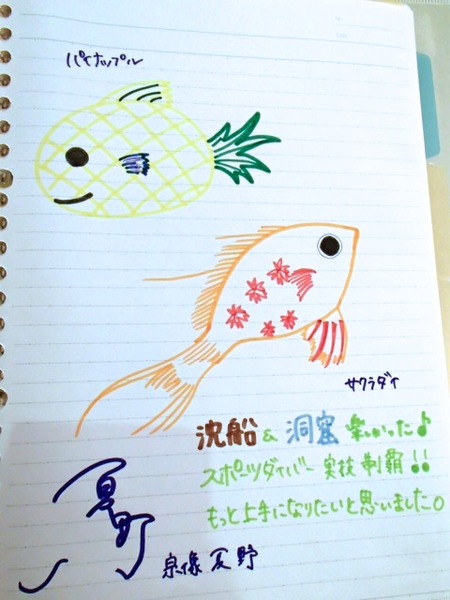 パイナップル
サクラダイ
沈船 & 洞窟 楽しかった♪
スポーツダイバー 実技 制覇!!
もっと上手になりたいと思いました。
夏野
宗像 夏野